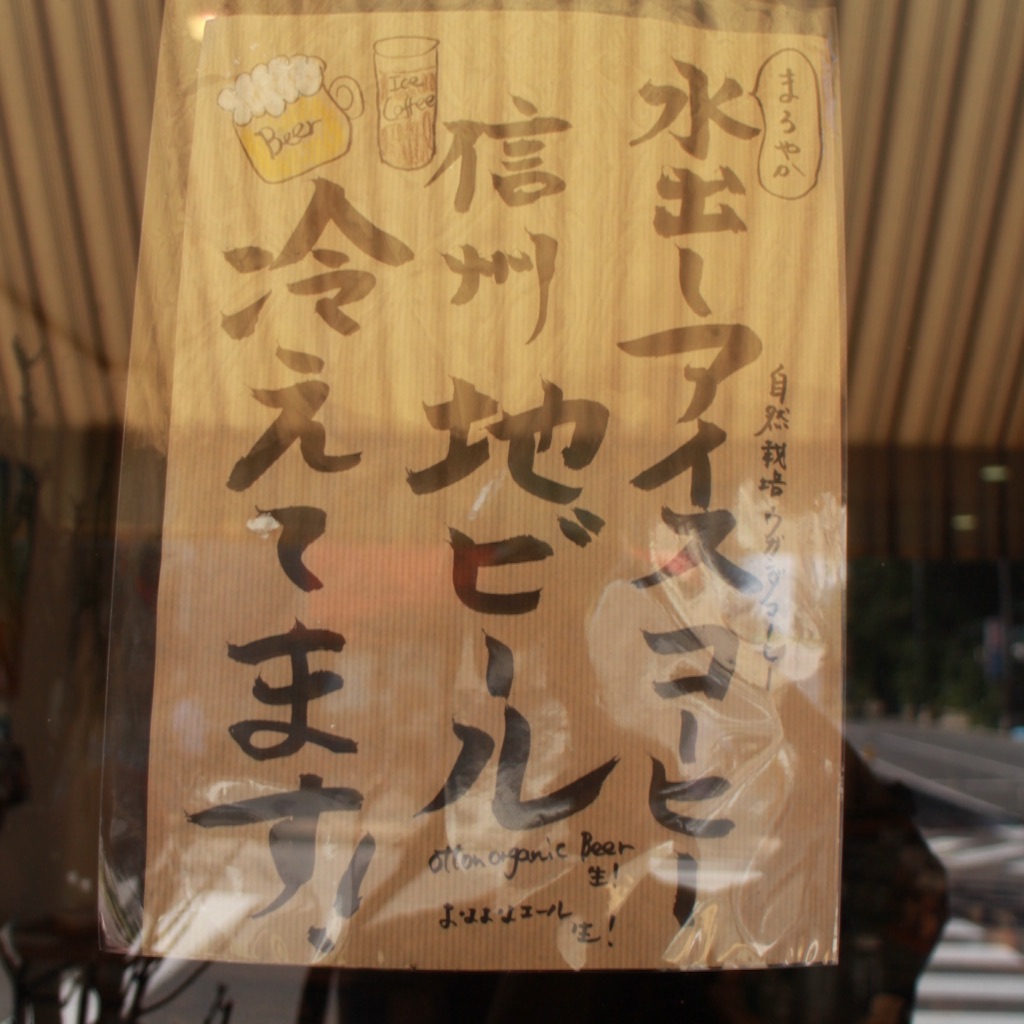 まろやか
水出しアイスコーヒー
自然栽培ウガンダコーヒー
信州地ビール
冷えてます!
Beer
Ice
Coffee
organic Beer
生!
よなよなエール
生!